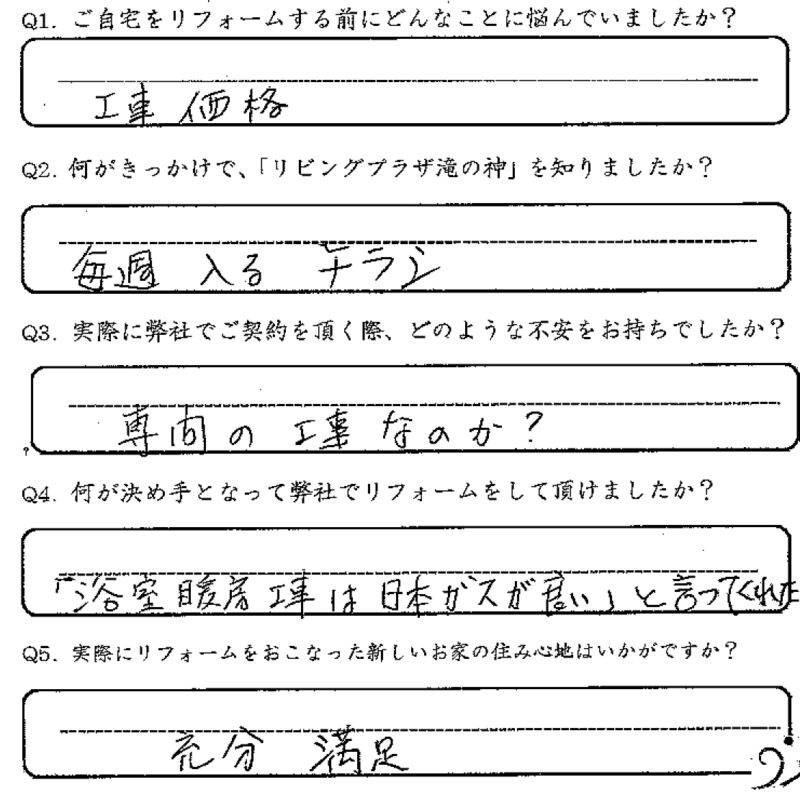 Q1. ご自宅をリフォームする前にどんなことに悩んでいましたか？
工事 価格
Q2. 何がきっかけで、「リビングプラザ滝の神」を知りましたか？
毎週 入る チラシ
Q3. 実際に弊社でご契約を頂く際、どのような不安をお持ちでしたか？
専門の 工事なのか？
Q4. 何が決め手となって弊社でリフォームをして頂けましたか？
「浴室暖房工事は日本ガスが良い」と言ってくれた
Q5. 実際にリフォームをおこなった新しいお家の住み心地はいかがですか？
充分 満足